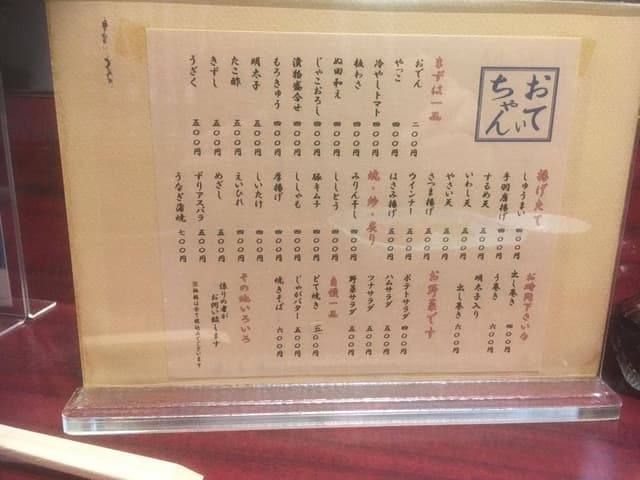 おてい
ちゃん
まずは一品
おでん 二〇〇円
やっこ 四〇〇円
冷やしトマト 四〇〇円
板わさ 四〇〇円
ぬた和え 四〇〇円
じゃこおろし 四〇〇円
漬物盛合せ 四〇〇円
もろきゅう 四〇〇円
明太子 五〇〇円
たこ酢 五〇〇円
きずし 五〇〇円
うざく 五〇〇円
揚げたて
しゅうまい 四〇〇円
手羽唐揚げ 四〇〇円
するめ天 五〇〇円
いわし天 五〇〇円
やさい天 五〇〇円
さつま揚げ 五〇〇円
ウインナー 五〇〇円
はさみ揚げ 五〇〇円
焼・炒・炙り
みりん干し 四〇〇円
ししとう 四〇〇円
豚キムチ 四〇〇円
ししゃも 四〇〇円
厚揚げ 四〇〇円
しいたけ 四〇〇円
えいひれ 四〇〇円
めざし 五〇〇円
ずりアスパラ 五〇〇円
うなぎ蒲焼 七〇〇円
お時間下さいな
出し巻き 四〇〇円
う巻き 六〇〇円
明太子入り
出し巻き 六〇〇円
お野菜です
ポテトサラダ 四〇〇円
ハムサラダ 五〇〇円
ツナサラダ 五〇〇円
野菜サラダ 五〇〇円
自慢一品
どて焼き 一五〇円
じゃがバター 五〇〇円
焼きそば 六〇〇円
その他いろいろ
係りの者が
お伺い致します
※価格は全て税込みでございます